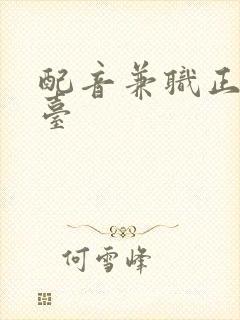 配音兼職正
臺
何雪峰